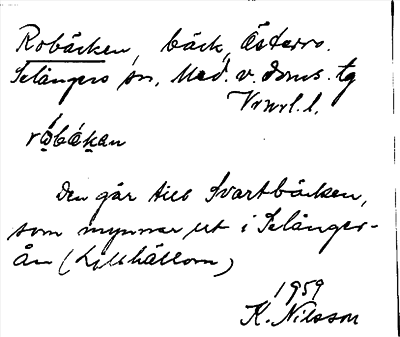 Robäcken, bäck, Österro.
Selångers sn, Med. v. doms. tg
råbäkan
Den går till Svartbäcken,
som mynnar ut i Selånger-
ån (Lillhällom)
1959
K. Nilsson